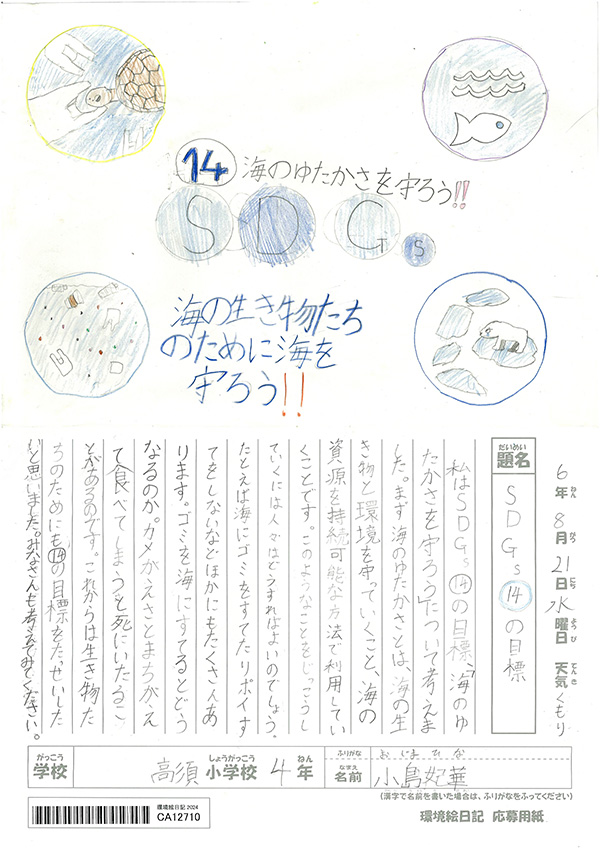 14 海のゆたかさを守ろう!!
SDGs
海の生き物たち
のために海を
守ろう!!
6年8月21日水曜日 天気くもり
ねん がつ にち ようび てんき
だいめい
題名
SDGs⑭の目標
私はSDGs⑭の目標、「海のゆ
たかさを守ろう」について考えま
した。まず海のゆたかさとは、海の生
き物と環境を守っていくこと、海の
資源を持続可能な方法で利用してい
くことです。このようなことをじっこうし
ていくには人々はどうすればよいのでしょう。
たとえば海にゴミをすてたりポイす
てをしないなどほかにもたくさんあ
ります。ゴミを海にすてるとどう
なるのか。カメがえさとまちがえ
て食べてしまうと死にいたるこ
とがあるのです。これからは生き物た
ちのためにも⑭の目標をたっせいした
いと思いました。みなさんも考えてみてください。
がっこう
学校
しょうがっこう ねん
高須小学校 4年
ふりがな
おじまひな
なまえ
名前 小島妃華
(漢字で名前を書いた場合は、ふりがなをふってください)
環境絵日記 2024
CA12710
環境絵日記 応募用紙